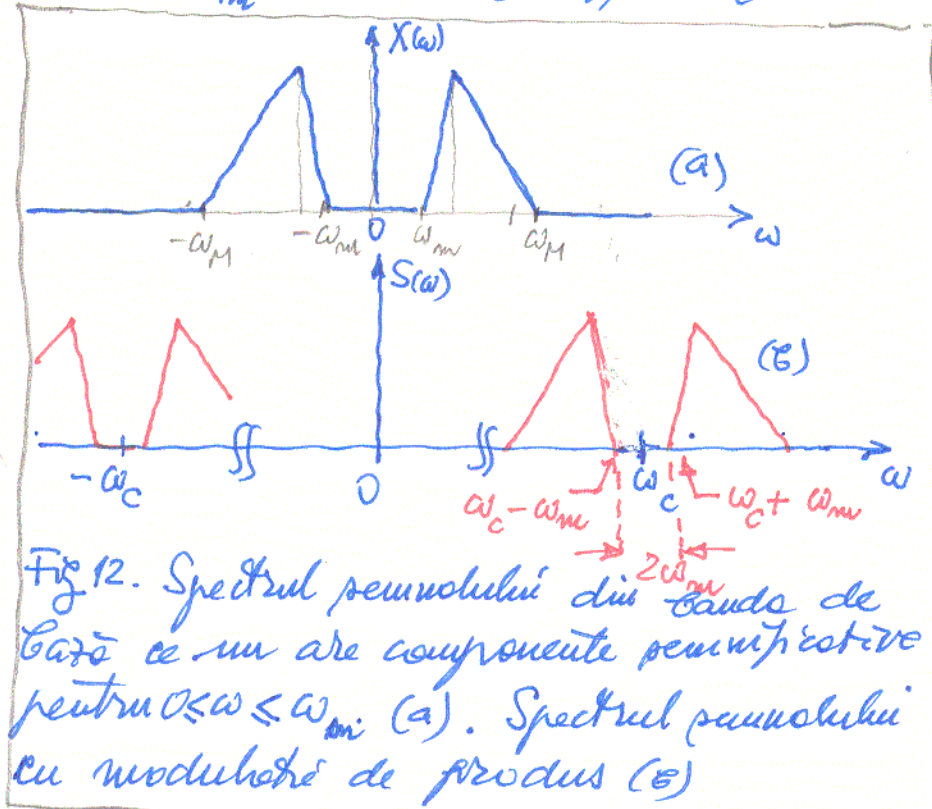 X(ω)
(a)
-ω_M -ω_m 0 ω_m ω_M ω
S(ω)
(b)
-ω_C 0 ω_C ω
ω_C - ω_m ω_C + ω_m
2ω_m
Fig 12. Spectrul semnalului din banda de
bază ce nu are componente semnificative
pentru 0≤ω≤ω_m (a). Spectrul semnalului
cu modulație de produs (b)